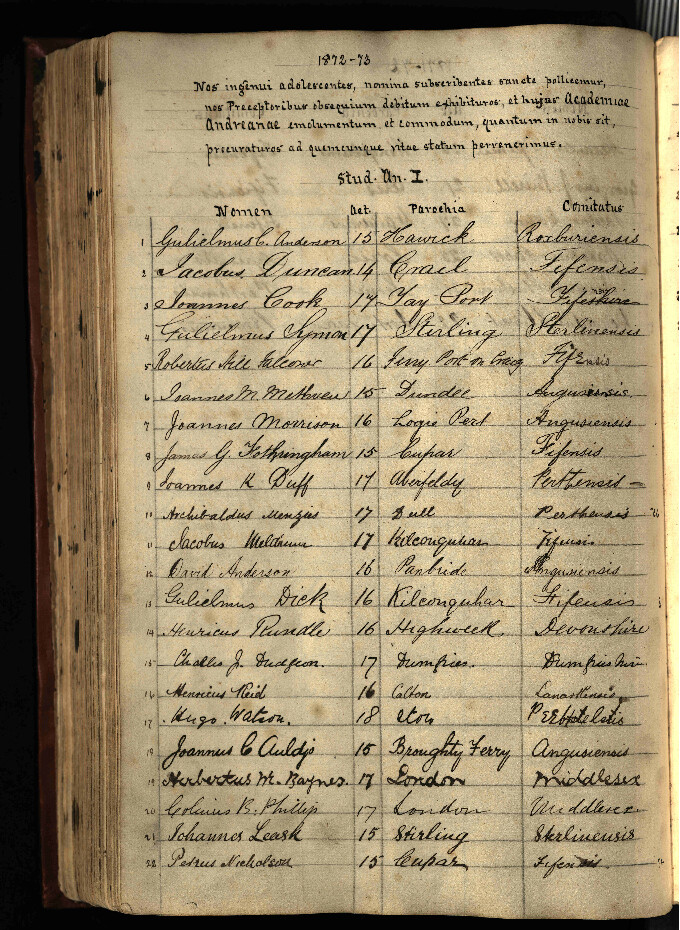 1872-73
Nos ingenui adolescentes, nomina subscribentes sancte pollicemur,
nos Preceptoribus obsequium debitum exhibituros, et hujus Academiae
Andreanae emolumentum et commodum, quantum in nobis sit,
procuraturos ad quemcunque vitae statum pervenerimus.
Stud. An. I.
Nomen Aet Parochia Comitatus
1 Gulielmus C. Anderson 15 Hawick Roxburiensis
2 Jacobus Duncan 14 Crail Fifensis
3 Joannes Cook 17 Tay Port
4 Gulielmus Symon 17 Sterling Sterlinensis
5 Robertus Falconer 16 Ferry Port on Craig Fifensis
6 Joannes M. Methven 15 Dundee Angusiensis
7 Joannes Morrison 16 Logie Pert Angusiensis
8 James G. Fothringham 15 Cupar Fifensis
9 Joannes K Duff 17 Aberfeldy Perthensis
10 Archibaldus Menzies 17 Dull Perthensis
11 Jacobus Meldrum 17 Kilconquhar Fifensis
12 David Anderson 16 Panbride Angusiensis
13 Gulielmus Dick 16 Kilconquhar Fifensis
14 Henricus Rundle 16 Highweek Devonshire
15 Charles J. Dudgeon. 17 Dumfries.
16 Henricus Reid 16 Calton
17. Hugo Watson. 18
18 Joannus C Auldjo 15 Broughty Ferry Angusiensis
19 Herbertus M. Baynes. 17 London Middlesex
20 Colinus B. Phillip 17 London Middlesex
21 Johannes Leask 15 Stirling Sterlinensis
22 Petrus Nicholson 15 Cupar Fifensis